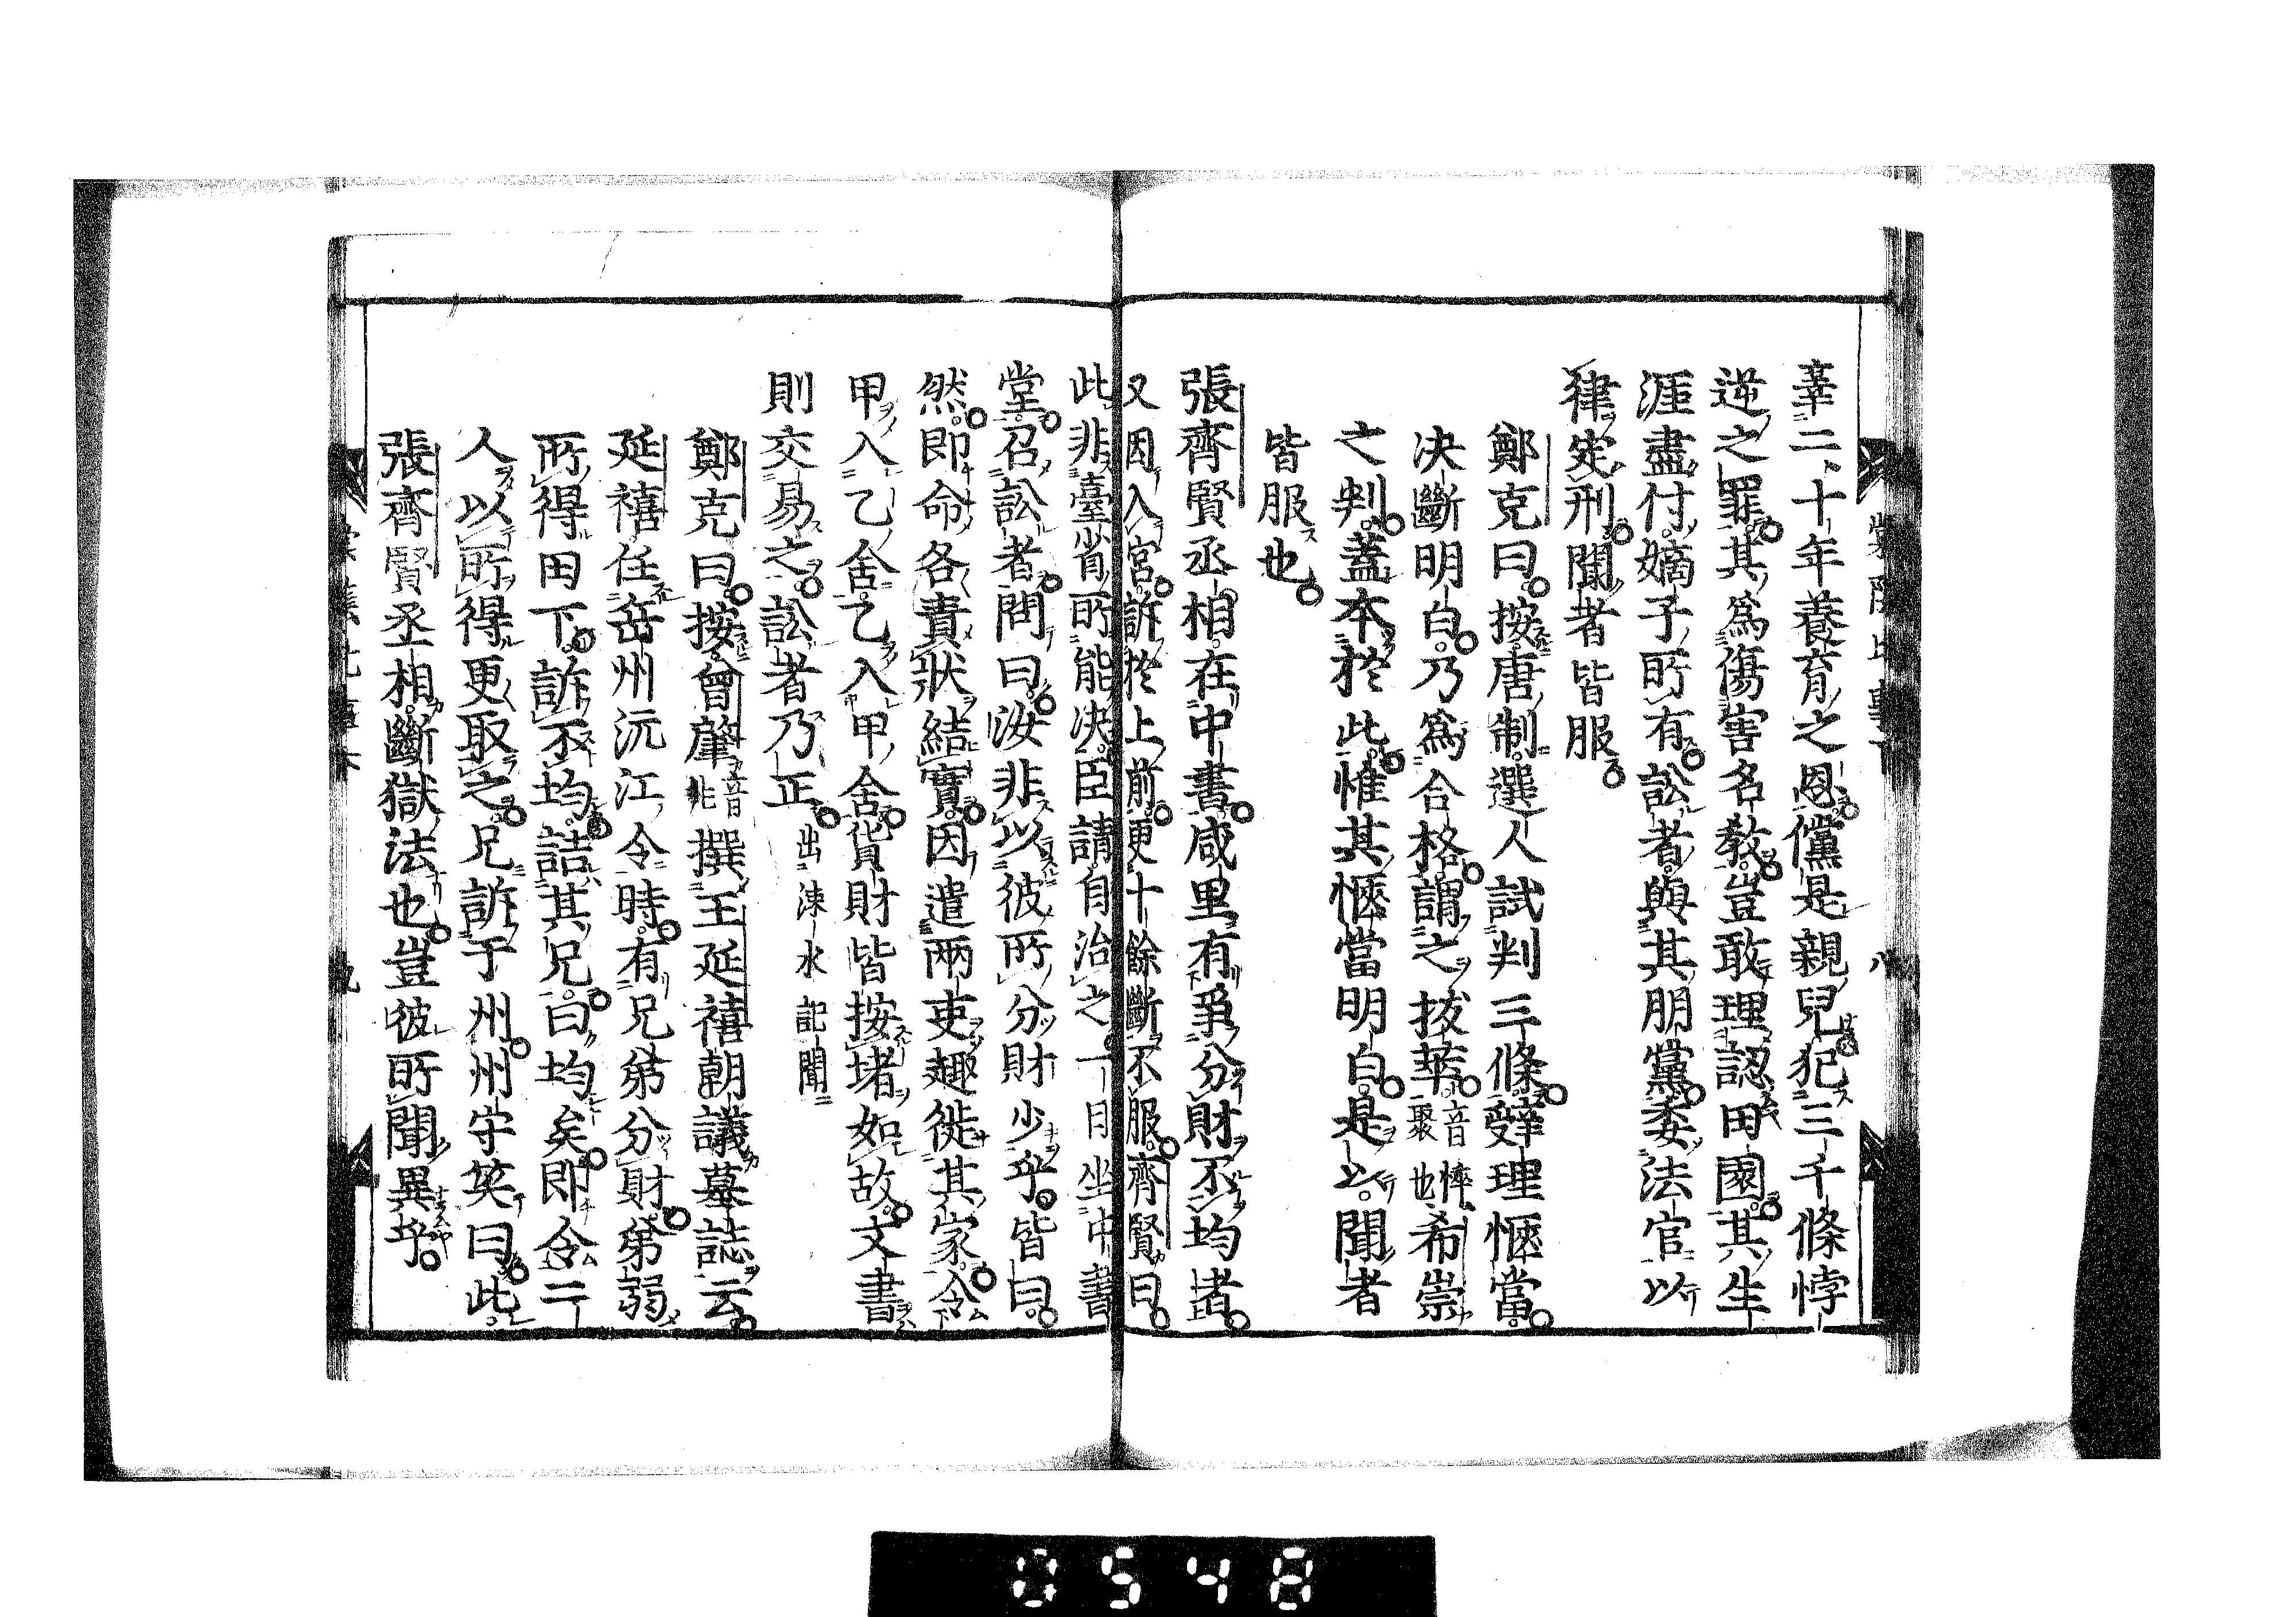 辜二十年養育之恩儻是親兒犯三千條悖
逆之罪其爲傷害名教豈敢理認田園其生
涯盡付嫡子所有訟者與其朋黨委法官以
律定刑聞者皆服
鄭克曰按唐制選人試判三條辭理愜當
决斷明白乃爲合格謂之拔萃音悴聚也希崇
之判蓋本於此惟其愜當明白是以聞者
皆服也
張齊賢丞相在中書戚里有爭分財不均者
又因入宮訴於上前更十餘斷不服齊賢曰
此非臺省所能决臣請自治之一日坐中書
堂召訟者問曰汝非以彼所分財少乎皆曰
然即命各責狀結實因遣兩吏趣徙其家令
甲入乙舍乙入甲舍貨財皆按堵如故文書
則交易之訟者乃正出涑水記聞
鄭克曰按曾肇音非撰王延禧朝議墓誌云
延禧任岳州沅江令時有兄弟分財弟弱
所得田下訴不均詰其兄曰均矣即令二
人以所得更取之兄訴于州州守笑曰此
張齊賢丞相斷獄法也豈彼所聞異乎
0548